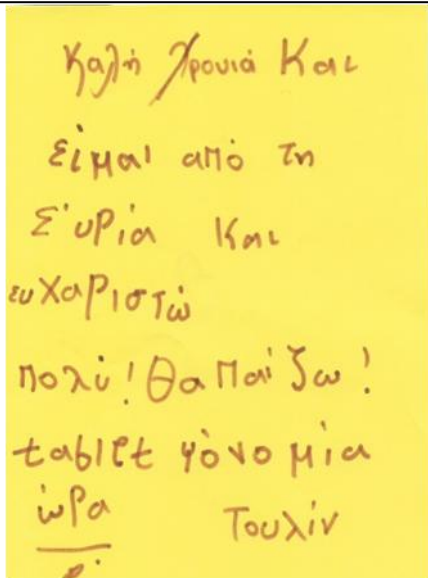 Καλή Χρονιά Και
είμαι από τη
Σ'υρία Και
ευχαριστώ
πολύ! Θα Παίζω!
tablet γόνο μία
ώρα Τουλίν